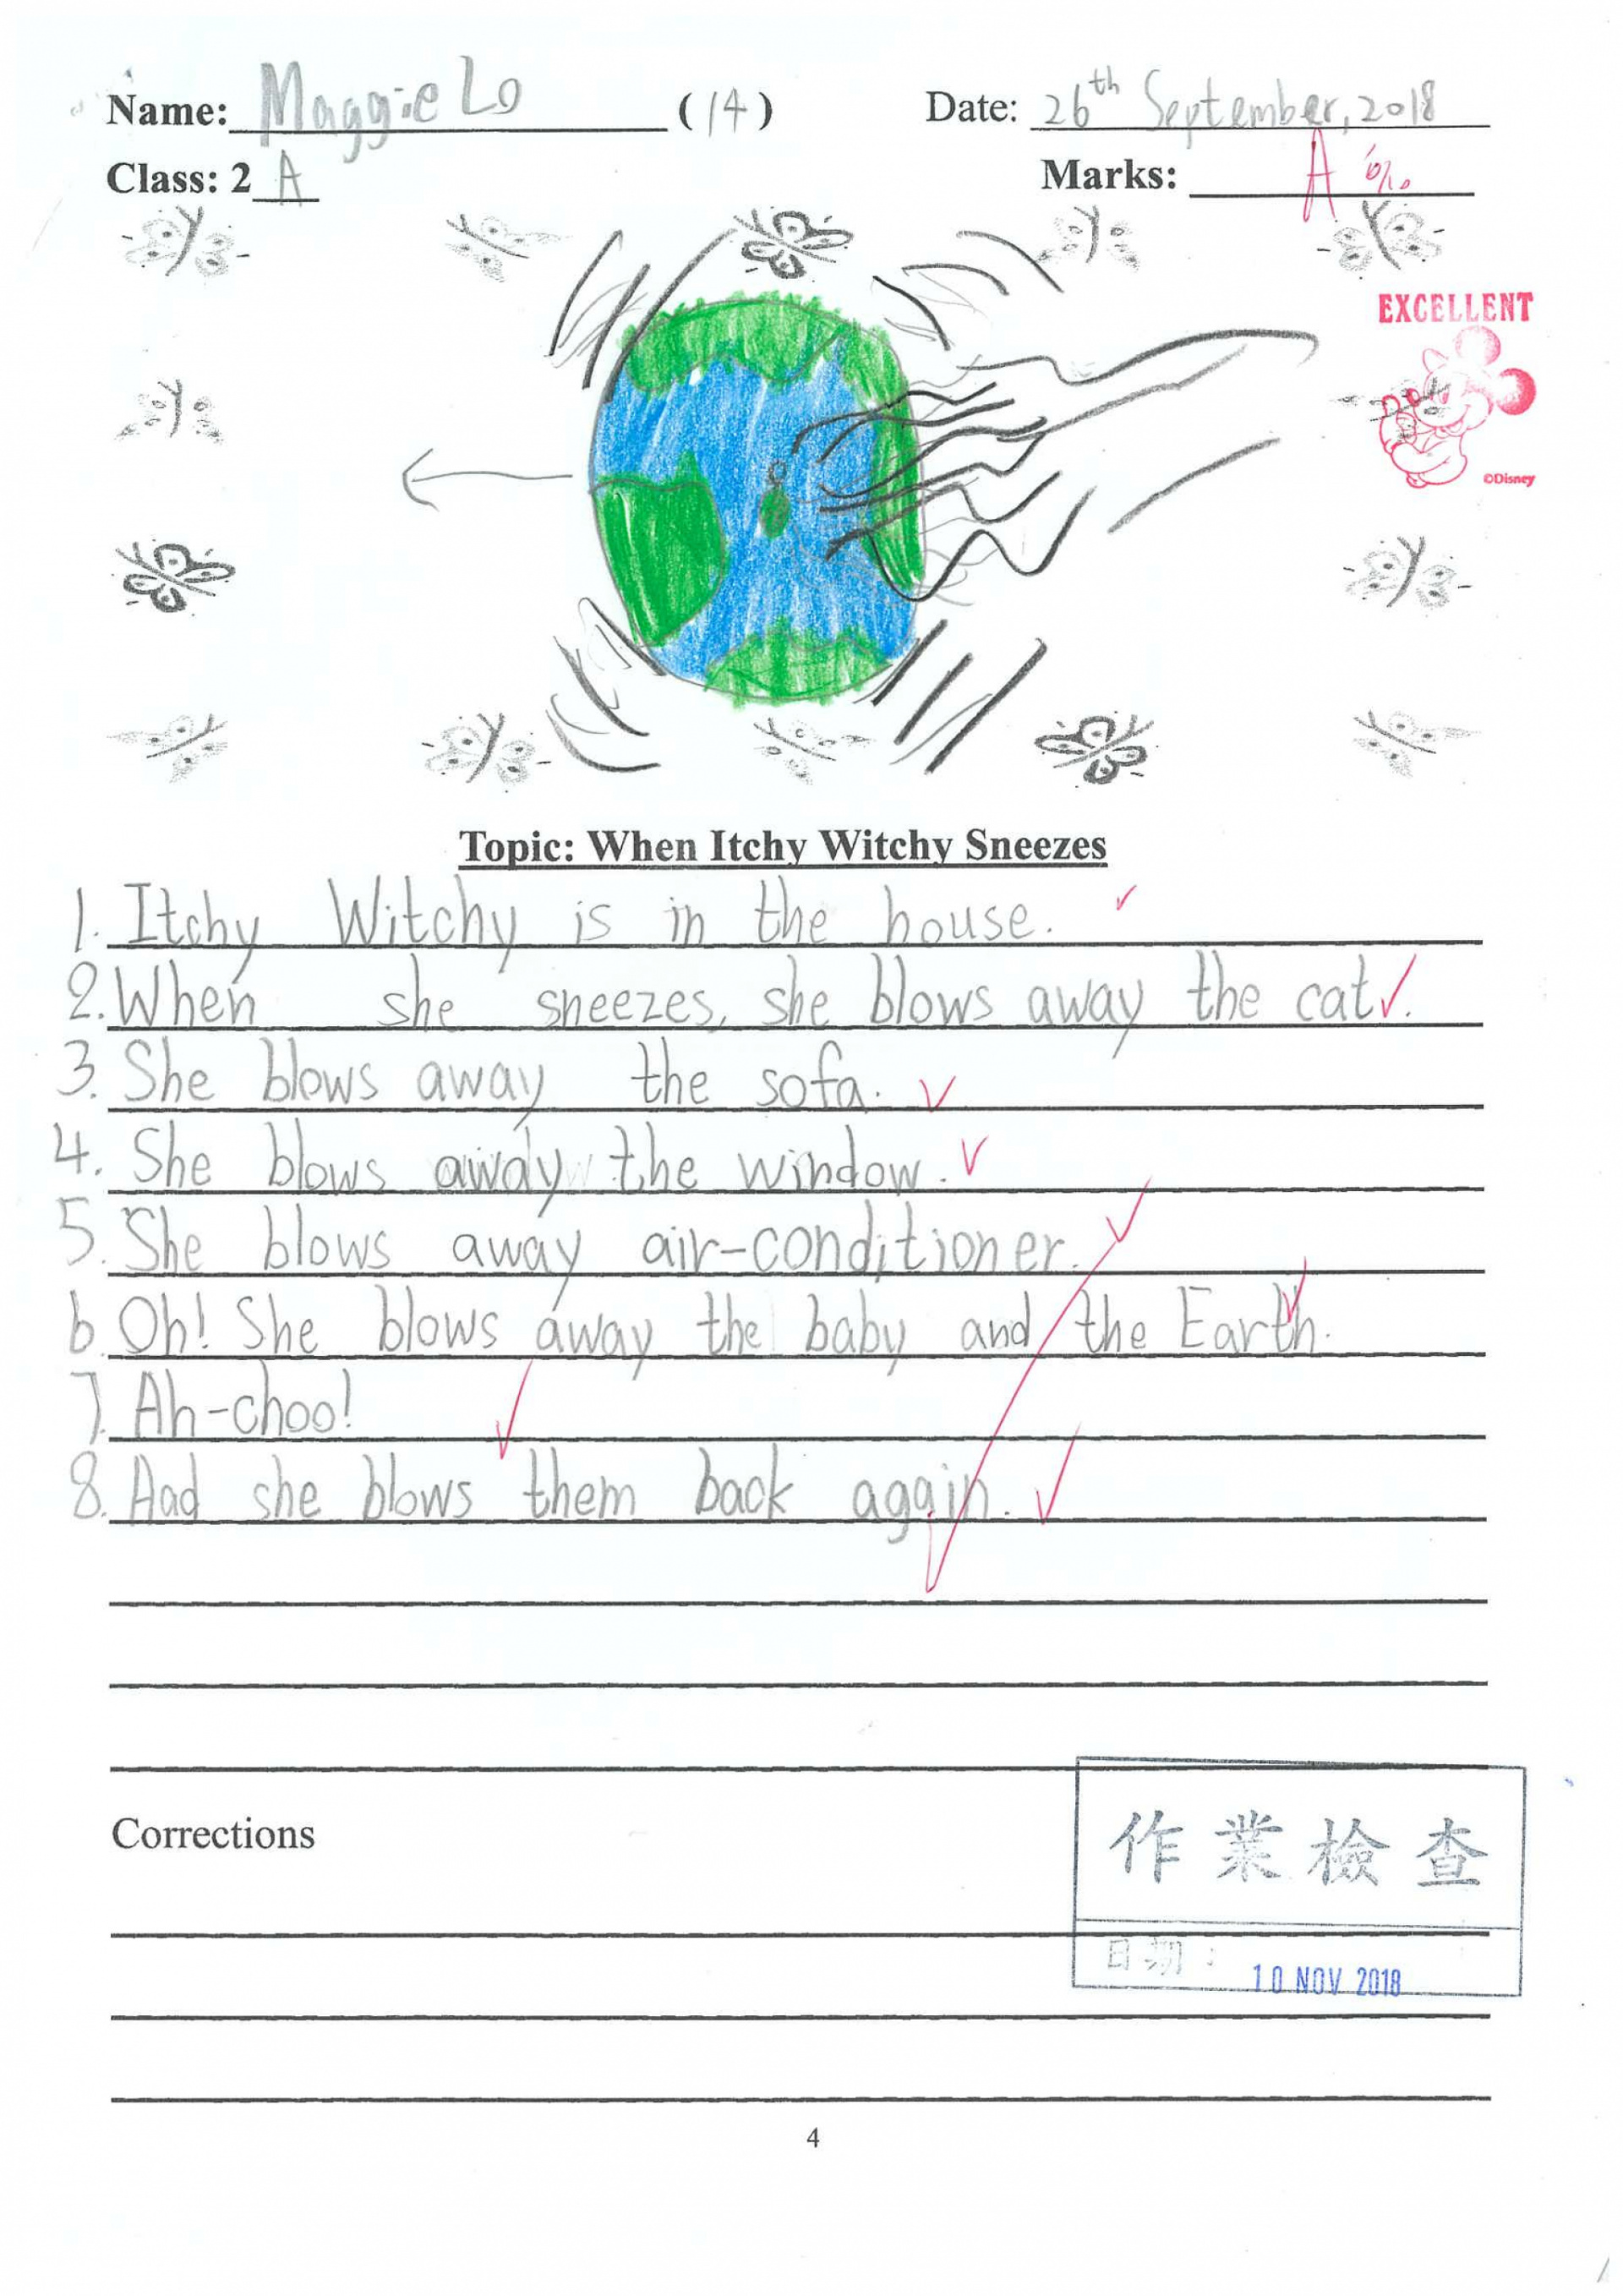 Name: Maggie Lo (14) Date: 26th September, 2018
Class: 2 A Marks: A
EXCELLENT
©Disney
Topic: When Itchy Witchy Sneezes
1. Itchy Witchy is in the house.
2. When she sneezes, she blows away the cat.
3. She blows away the sofa.
4. She blows away the window.
5. She blows away air-conditioner.
6. Oh! She blows away the baby and the Earth.
7. Ah-choo!
8. And she blows them back again.
Corrections
作業檢查
日期：
10 NOV 2018
4